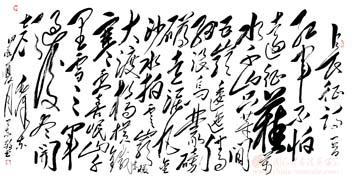 长征诗一首
红军不怕
远征难万
水千山只等闲
五岭逶迤腾
细浪乌蒙磅
礴走泥丸金
沙水拍云崖暖
大渡桥横铁索
寒更喜岷山千
里雪三军
过后尽开
颜 毛泽东